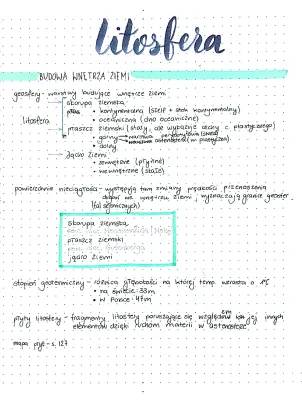 litosfera
BUDOWA WNĘTRZA ZIEMI
geosfery - warstwy budujące wnętrze ziemi
skorupa ziemska
• kontynentalna (szelf + stok kontynentalny)
• oceaniczna (dno oceaniczne)
litosfera
płaszcz ziemski (stały, ale wykazuje cechy c. plastycznego)
• górny
• dolny
jądro ziemi
• zewnętrzne (płynne)
• wewnętrzne (stałe)
powierzchnie nieciągłości - występują tam zmiany prędkości przenoszenia
(fal sejsmicznych) we wnętrzu ziemi, wyznaczają granice geosfer
skorupa ziemska
płaszcz ziemski
jądro ziemi
stopień geotermiczny - różnica głębokości na której temp. wzrasta o 1°C
• na świecie: 33m
• w Polsce: 47m
płyty litosfery - fragmenty litosfery poruszające się względem innych
elementów dzięki ruchom materii w astenosferze
mapa płyt - s. 127